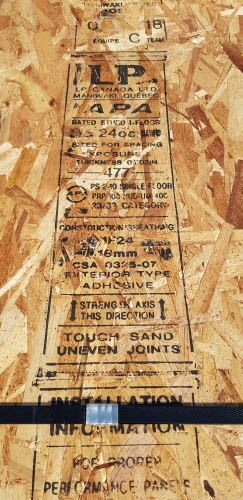 MANIWAKI QUÉBEC
C 18
ÉQUIPE C TEAM
LP
LP CANADA LTD.
MANIWAKI, QUÉBEC
APA
RATED STURD-I-FLOOR
24oc
SIZED FOR SPACING
EXPOSURE
THICKNESS
477
PS 2-10 SINGLE FLOOR
PRP-108 HUD-UM 40C
23/32 CATEGORY
CONSTRUCTION SHEATHING
1F24
18mm
CSA O325-07
EXTERIOR TYPE
ADHESIVE
STRENGTH AXIS
THIS DIRECTION
TOUCH SAND
UNEVEN JOINTS
INSTALLATION
INFORMATION
FOR PROPER
PERFORMANCE PANELS